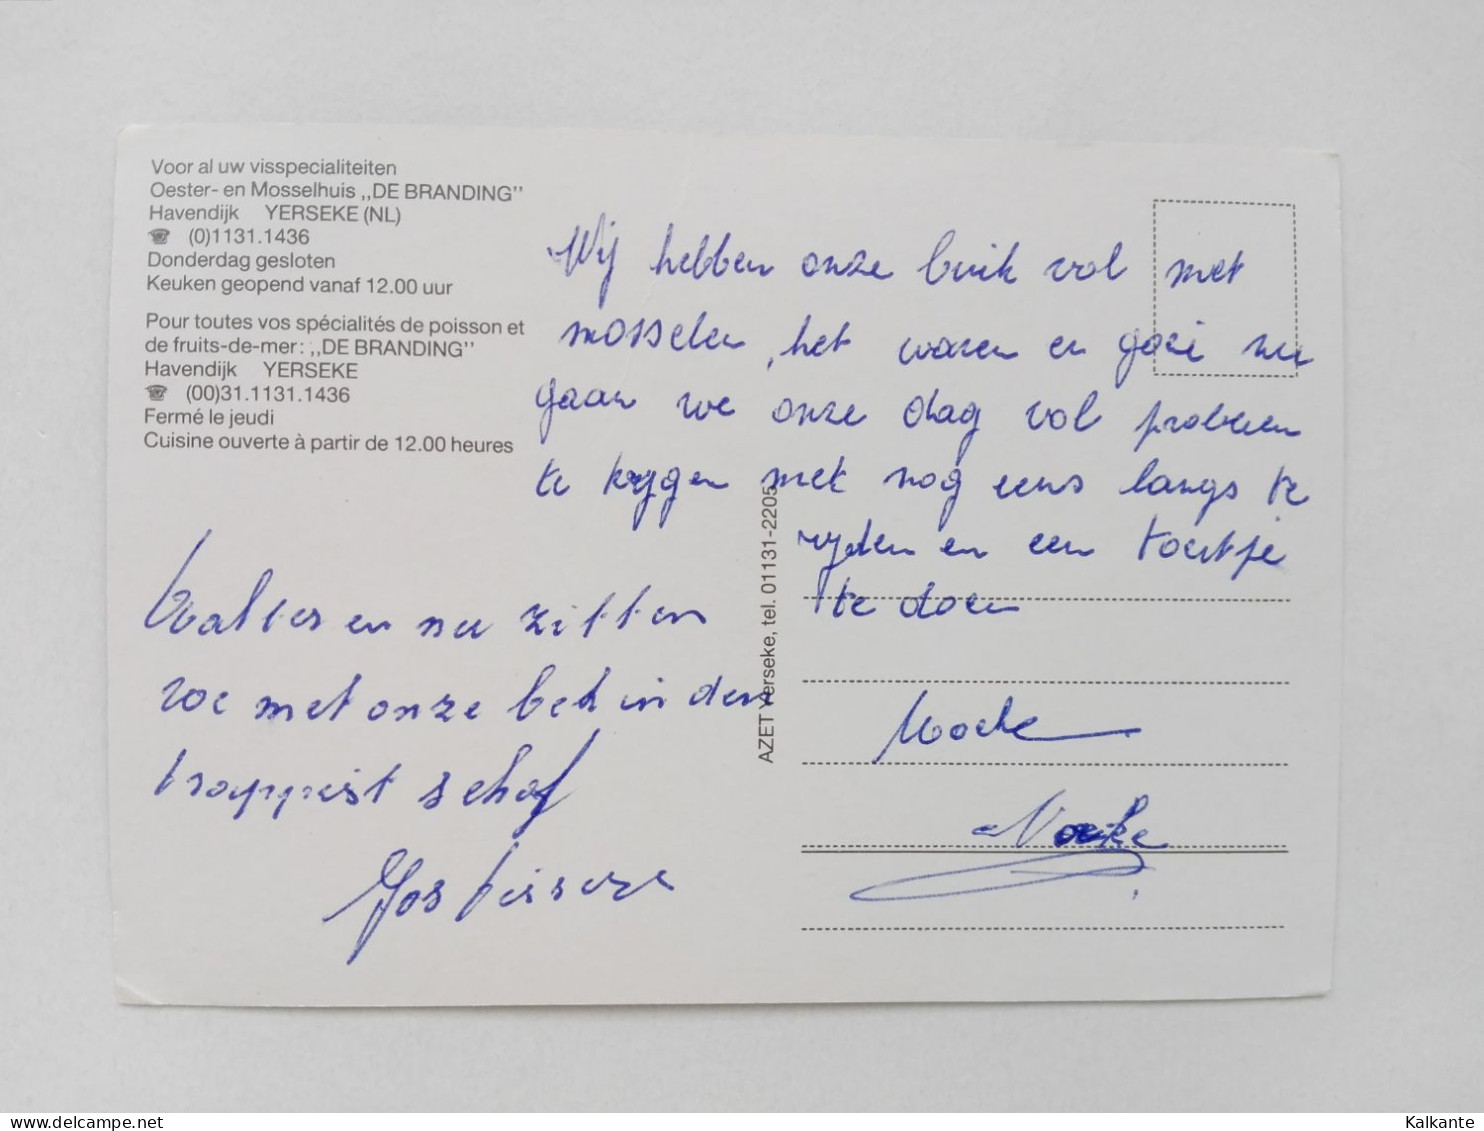 Voor al uw visspecialiteiten
Oester- en Mosselhuis ,,DE BRANDING"
Havendijk YERSEKE (NL)
☎ (0)1131.1436
Donderdag gesloten
Keuken geopend vanaf 12.00 uur
Pour toutes vos spécialités de poisson et
de fruits-de-mer: ,,DE BRANDING"
Havendijk YERSEKE
☎ (00)31.1131.1436
Fermé le jeudi
Cuisine ouverte à partir de 12.00 heures
Wij hebben onze buik vol met
mosselen, het waren en goei nu
gaan we onze dag vol proberen
te krygen met nog eens langs te
ryden en een toertje
te doen
Walter en nu zitten
we met onze bek in den
trappist schaf
Jos
AZET Yerseke, tel. 01131-2205
Kalkante